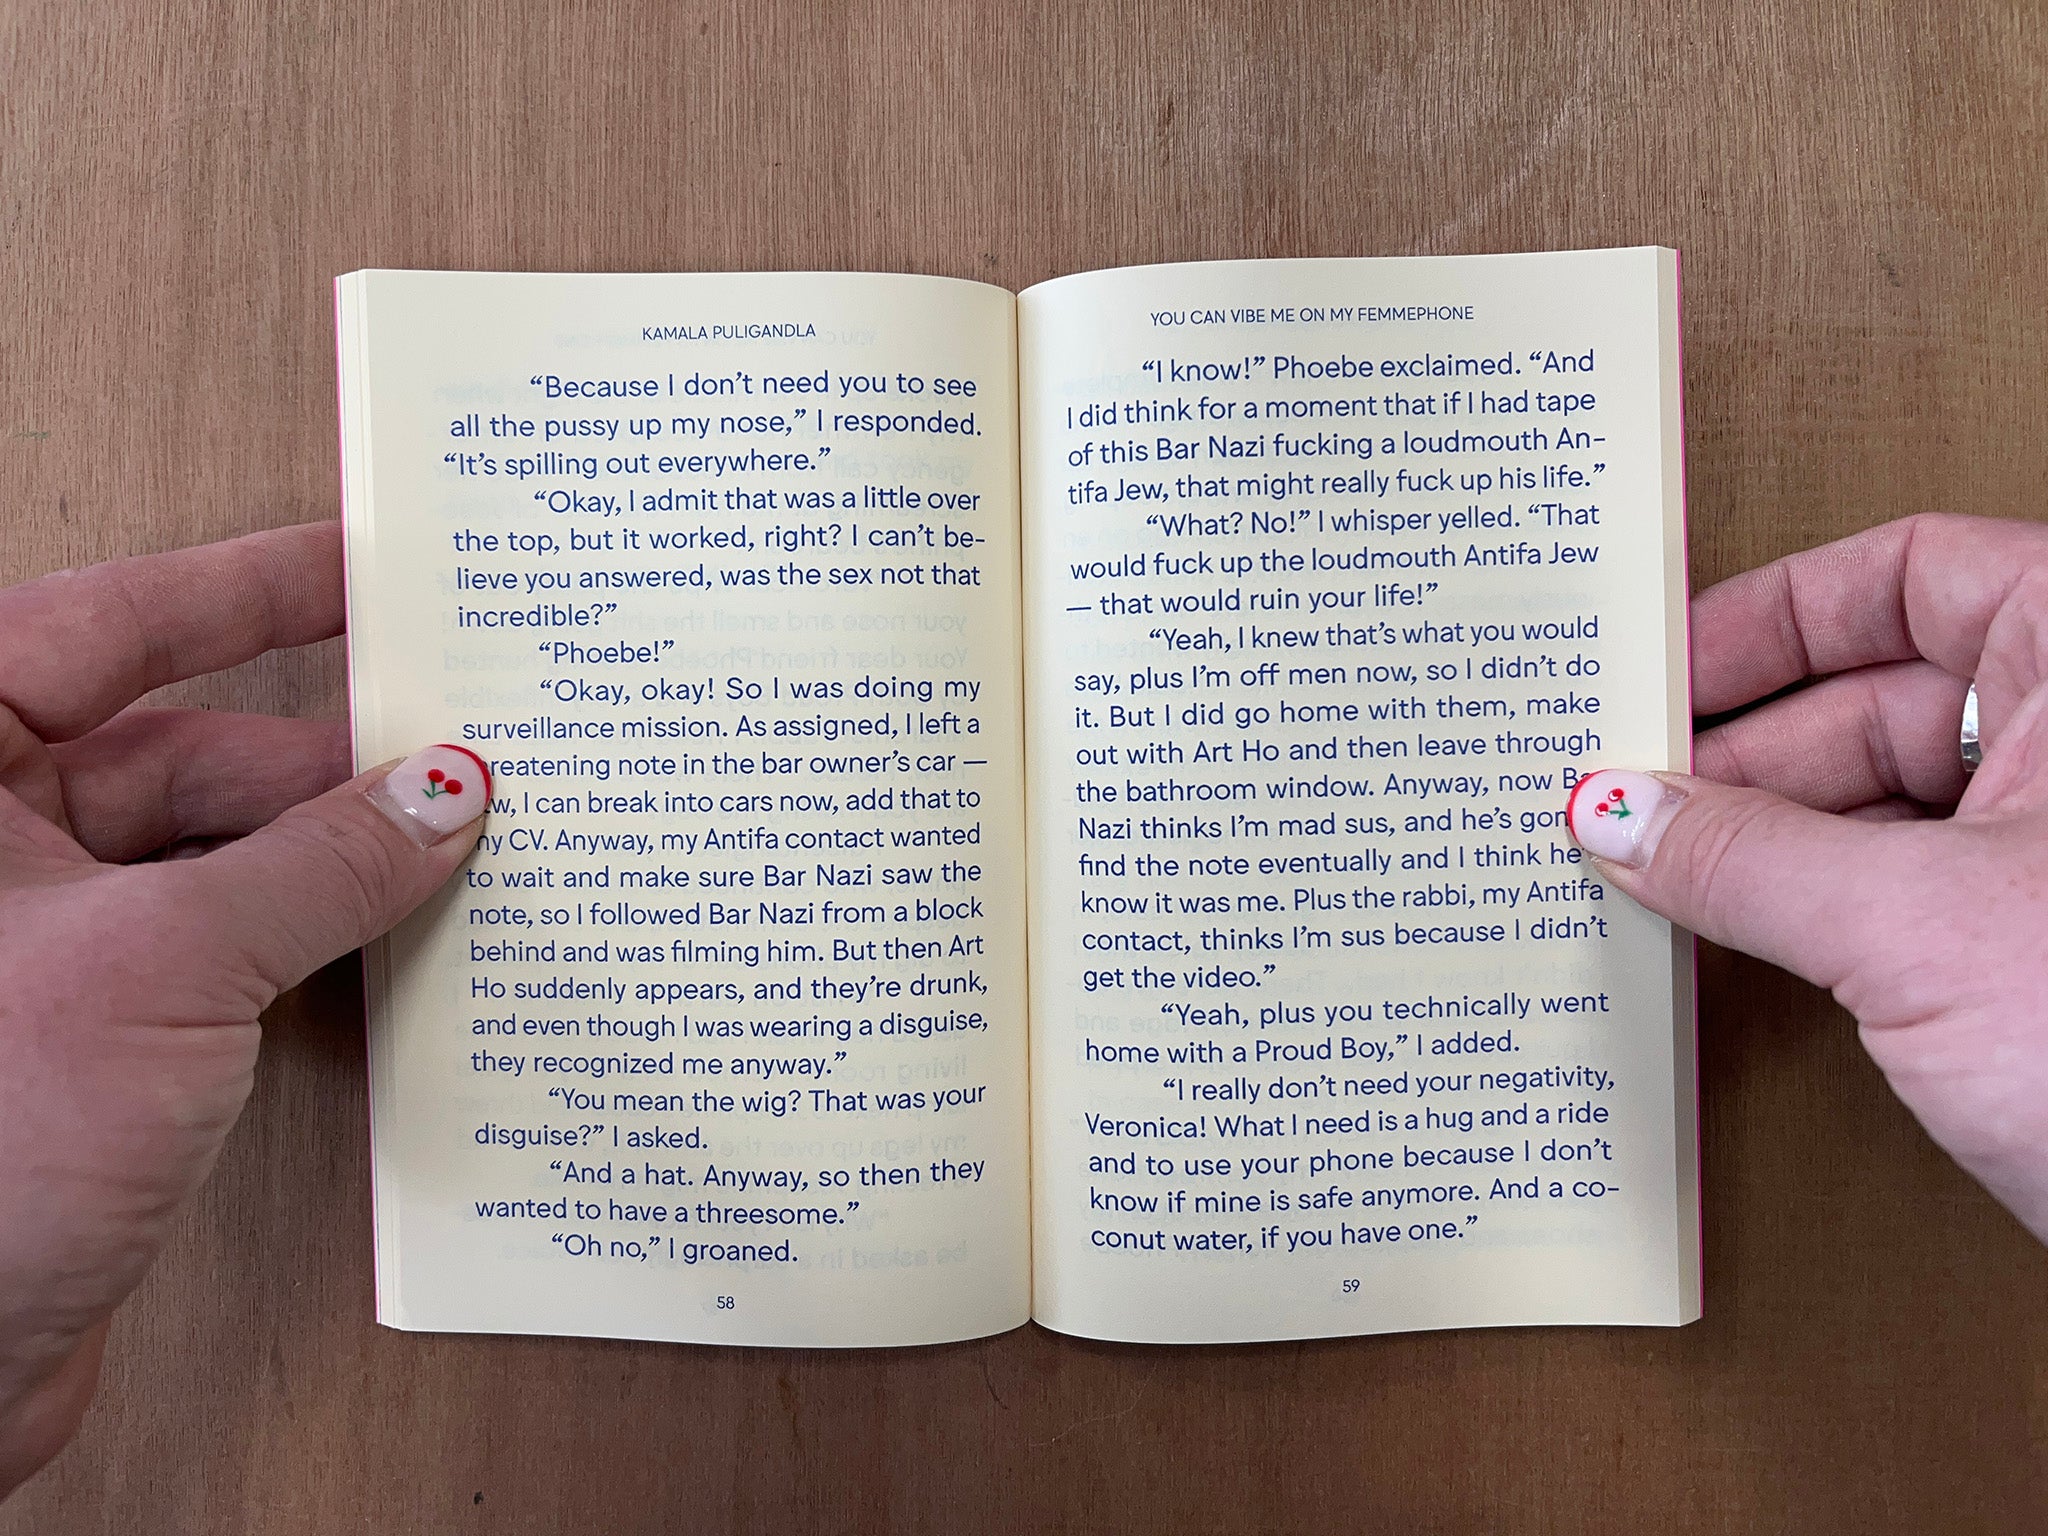 KAMALA PULIGANDLA
“Because I don’t need you to see
all the pussy up my nose,” I responded.
“It’s spilling out everywhere.”
“Okay, I admit that was a little over
the top, but it worked, right? I can’t be-
lieve you answered, was the sex not that
incredible?”
“Phoebe!”
“Okay, okay! So I was doing my
surveillance mission. As assigned, I left a
note in the bar owner’s car —
I can break into cars now, add that to
CV. Anyway, my Antifa contact wanted
to wait and make sure Bar Nazi saw the
note, so I followed Bar Nazi from a block
behind and was filming him. But then Art
Ho suddenly appears, and they’re drunk,
and even though I was wearing a disguise,
they recognized me anyway.”
“You mean the wig? That was your
disguise?” I asked.
“And a hat. Anyway, so then they
wanted to have a threesome.”
“Oh no,” I groaned.
58
YOU CAN VIBE ME ON MY FEMMEPHONE
“I know!” Phoebe exclaimed. “And
I did think for a moment that if I had tape
of this Bar Nazi fucking a loudmouth An-
tifa Jew, that might really fuck up his life.”
“What? No!” I whisper yelled. “That
would fuck up the loudmouth Antifa Jew
— that would ruin your life!”
“Yeah, I knew that’s what you would
say, plus I’m off men now, so I didn’t do
it. But I did go home with them, make
out with Art Ho and then leave through
the bathroom window. Anyway, now
Nazi thinks I’m mad sus, and he’s
find the note eventually and I think
know it was me. Plus the rabbi, my Antifa
contact, thinks I’m sus because I didn’t
get the video.”
“Yeah, plus you technically went
home with a Proud Boy,” I added.
“I really don’t need your negativity,
Veronica! What I need is a hug and a ride
and to use your phone because I don’t
know if mine is safe anymore. And a co-
conut water, if you have one.”
59